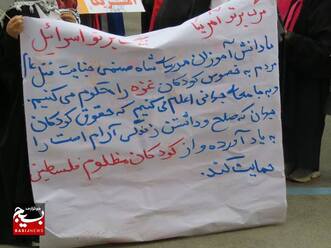 مرگ بر تو آمریکا
مرگ بر تو اسرائیل
ما دانش آموزان مدرسه شاه صنمی جنایت قتل عام
مردم به خصوص کودکان غزه را محکوم می کنیم
و به جامعه جهانی اعلام می کنیم که حقوق کودکان
جهان که صلح و داشتن زندگی آرام است را
به یاد آورده و از کودکان مظلوم فلسطینی
حمایت کنند.
بسیج
BASIJNEWS